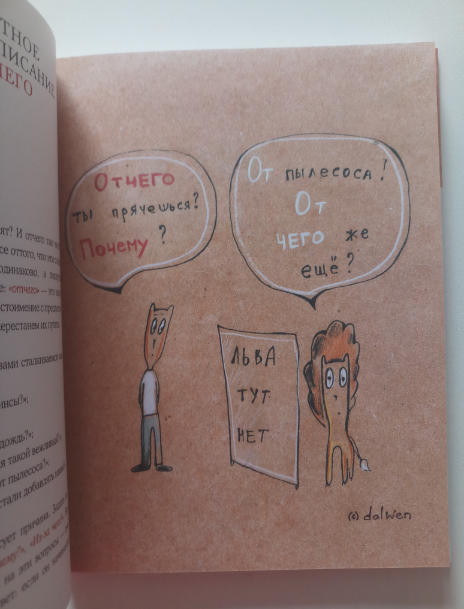 ТНОЕ
ПИСАНИЕ
ЧЕГО
ят? И отчего так
се оттого, что
одинаково, а
е: «отчего» — это
стоимение с предлогом
ерестанем их путать
вами сталкиваемся
инсы?»;
дождь?»;
я такой вежливый?»
от пылесоса?»;
стали добавлять
сует причина.
на эти вопросы
ответ: если он
Отчего
ты прячешься?
Почему ?
От пылесоса!
От
чего же
ещё?
ЛЬВА
ТУТ
НЕТ
(c) dalwen